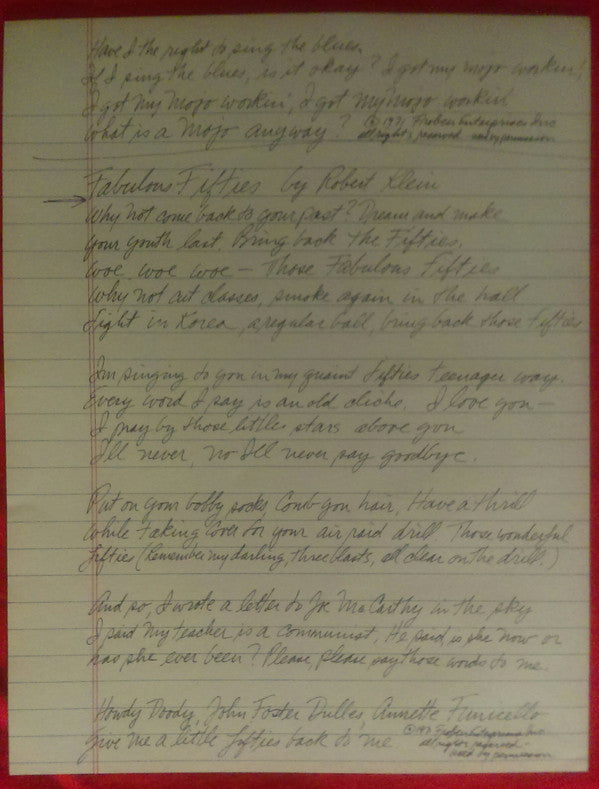 Have I the right to sing the blues.
If I sing the blues, is it okay? I got my mojo workin!
I got my mojo workin', I got my mojo workin
What is a Mojo anyway? © 1971 Enterprises
all rights reserved used by permission
Fabulous Fifties by Robert Klein
Why not come back to your past? Dream and make
your youth last. Bring back the Fifties,
woe, woe woe - Those Fabulous Fifties
Why not cut classes, smoke again in the hall
Fight in Korea, a regular ball, bring back those fifties
I'm singing to you in my quaint fifties teenager way.
Every word I say is an old cliche. I love you -
I pray by those little stars above you
I'll never, no I'll never say goodbye.
Put on your bobby socks Comb you hair, Have a thrill
While taking cover for your air raid drill. Those wonderful
fifties (Remember my darling, three blasts, all clear on the drill.)
And so, I wrote a letter to Joe McCarthy in the sky
I said my teacher is a communist, He said is she now or
has she ever been? Please, please say those words to me.
Howdy Doody, John Foster Dulles, Annette Funicello
Give me a little fifties back to me © 1971 Enterprises Inc
all rights reserved -
used by permission